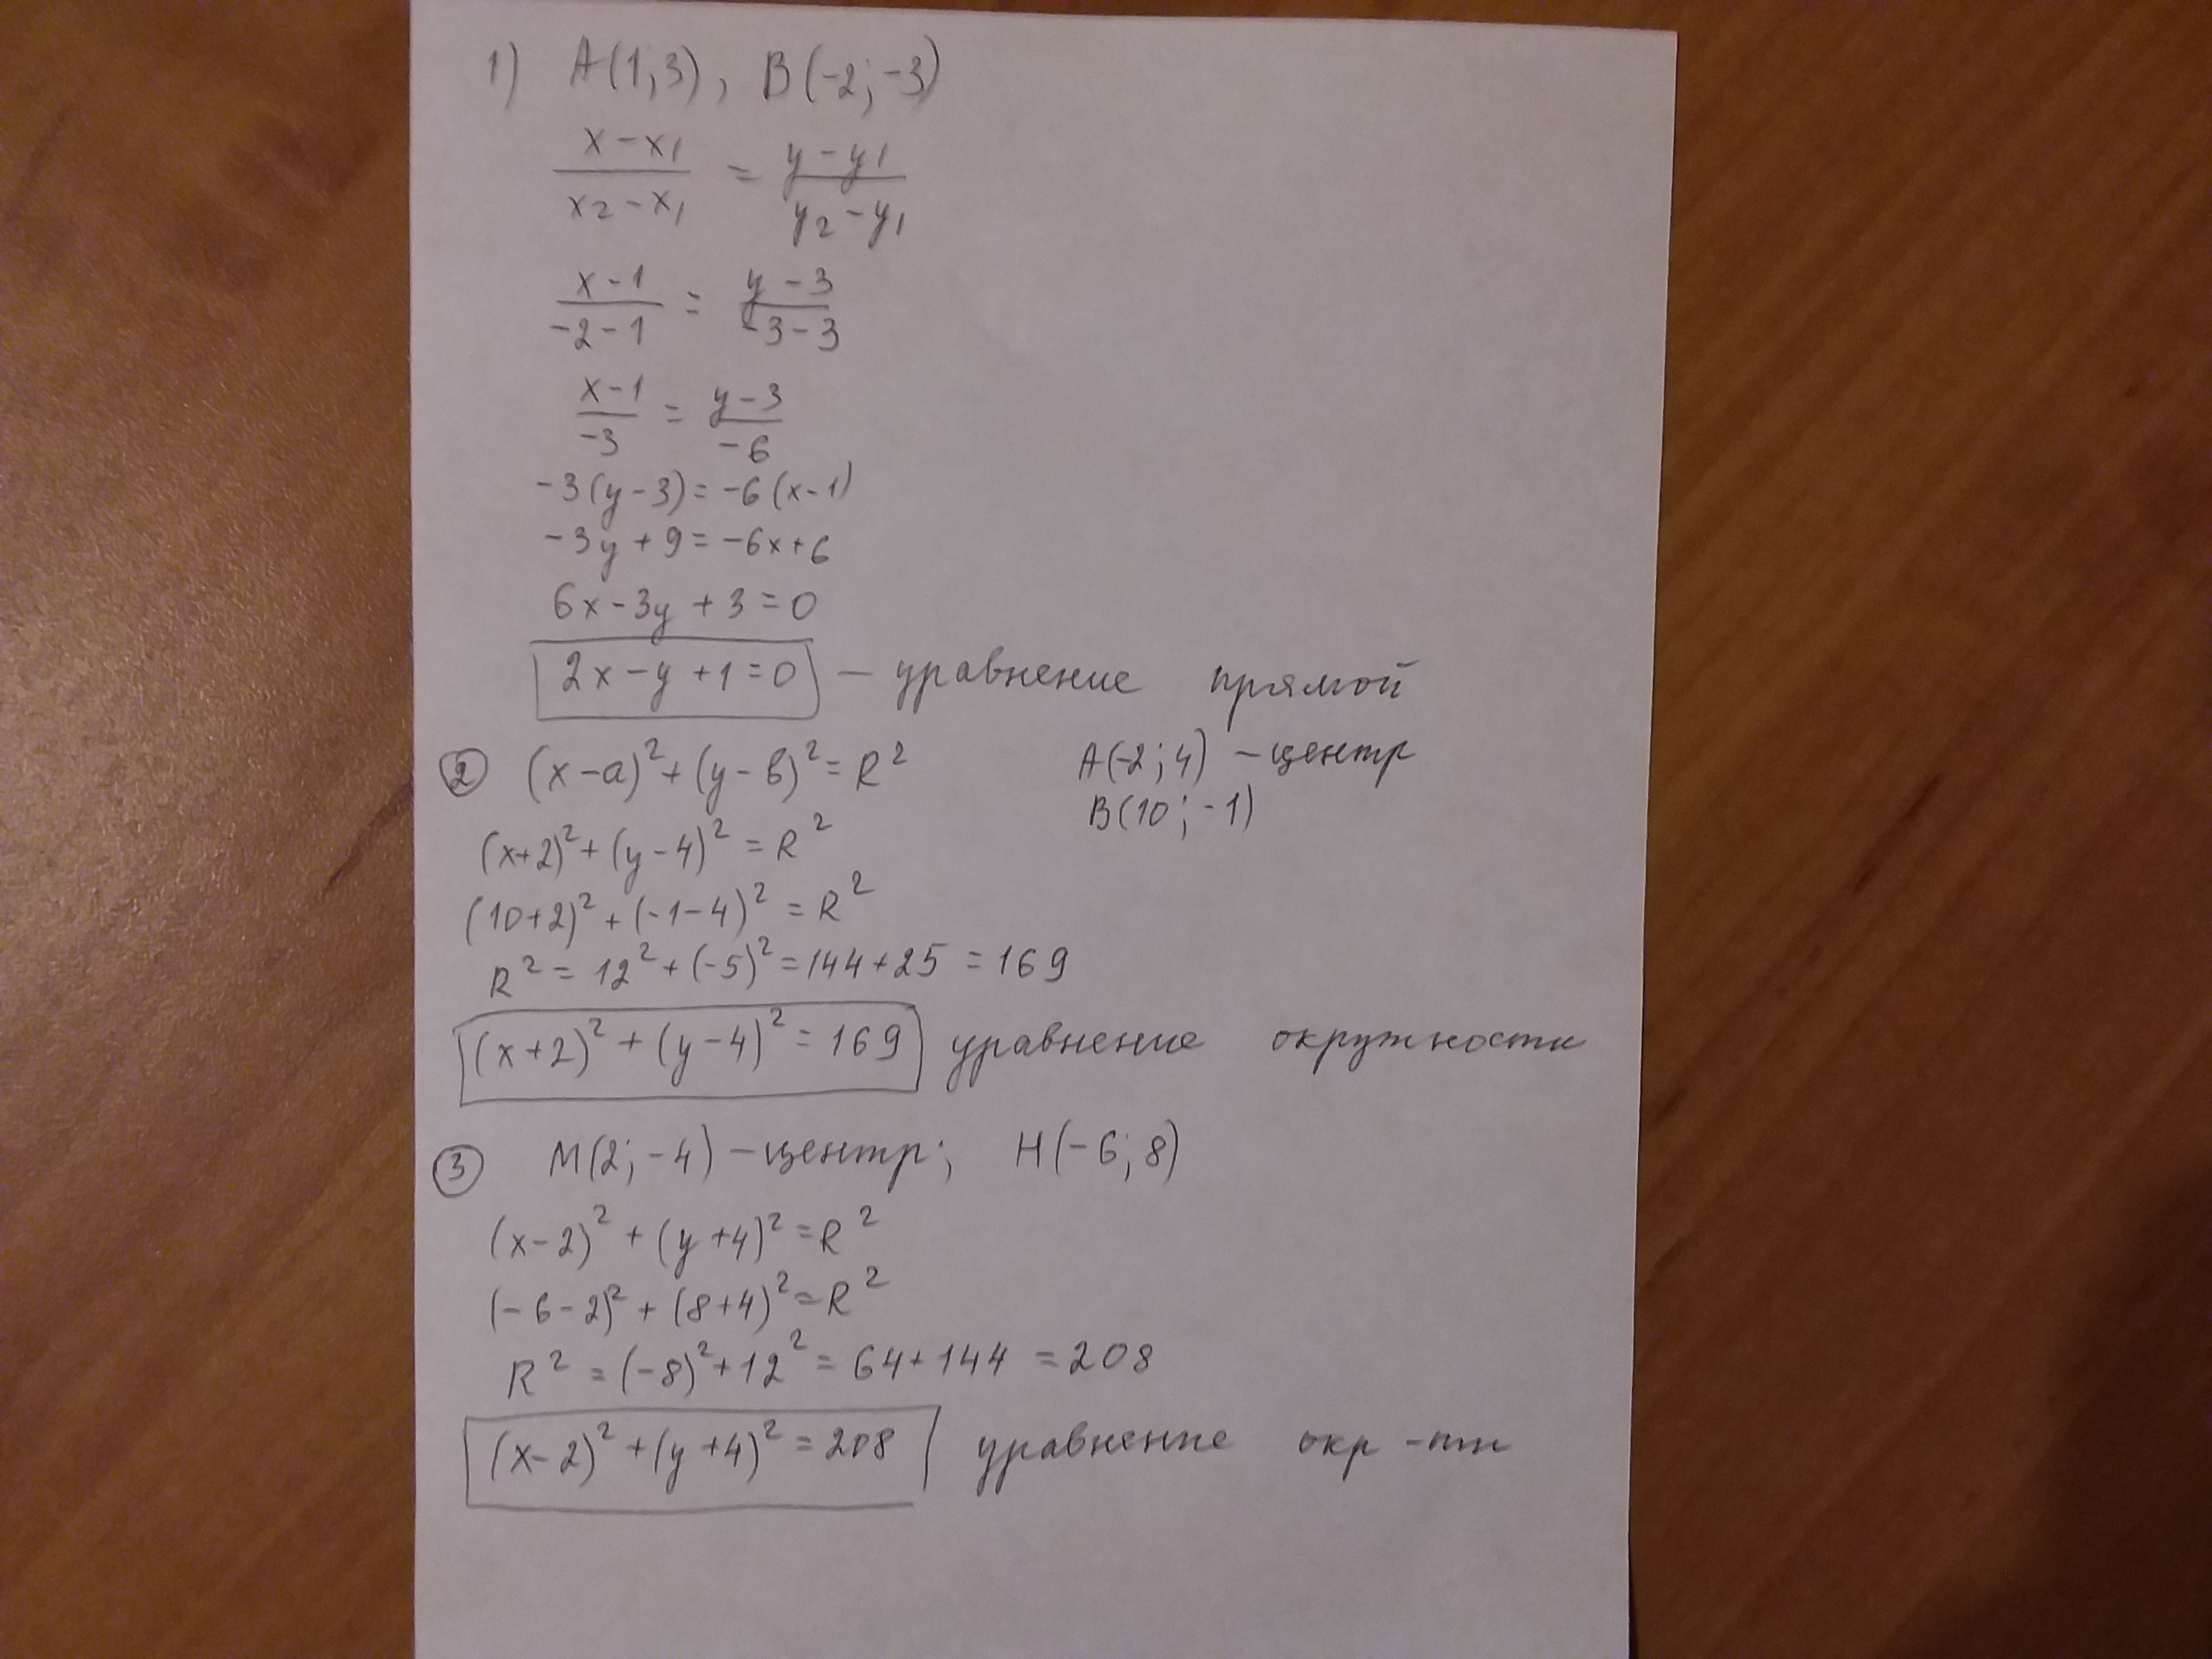 1) A(1;3), B(-2;-3)
x-x₁/x₂-x₁ = y-y₁/y₂-y₁
x-1/-2-1 = y-3/-3-3
x-1/-3 = y-3/-6
-3(y-3)=-6(x-1)
-3y+9=-6x+6
6x-3y+3=0
2x-y+1=0 - уравнение прямой
② (x-a)²+(y-в)²=R² A(-2;4) - центр
B(10;-1)
(x+2)²+(y-4)²=R²
(10+2)²+(-1-4)²=R²
R²=12²+(-5)²=144+25=169
(x+2)²+(y-4)²=169 уравнение окружности
③ M(2;-4) - центр; H(-6;8)
(x-2)²+(y+4)²=R²
(-6-2)²+(8+4)²=R²
R²=(-8)²+12²=64+144=208
(x-2)²+(y+4)²=208 уравнение окр-ти